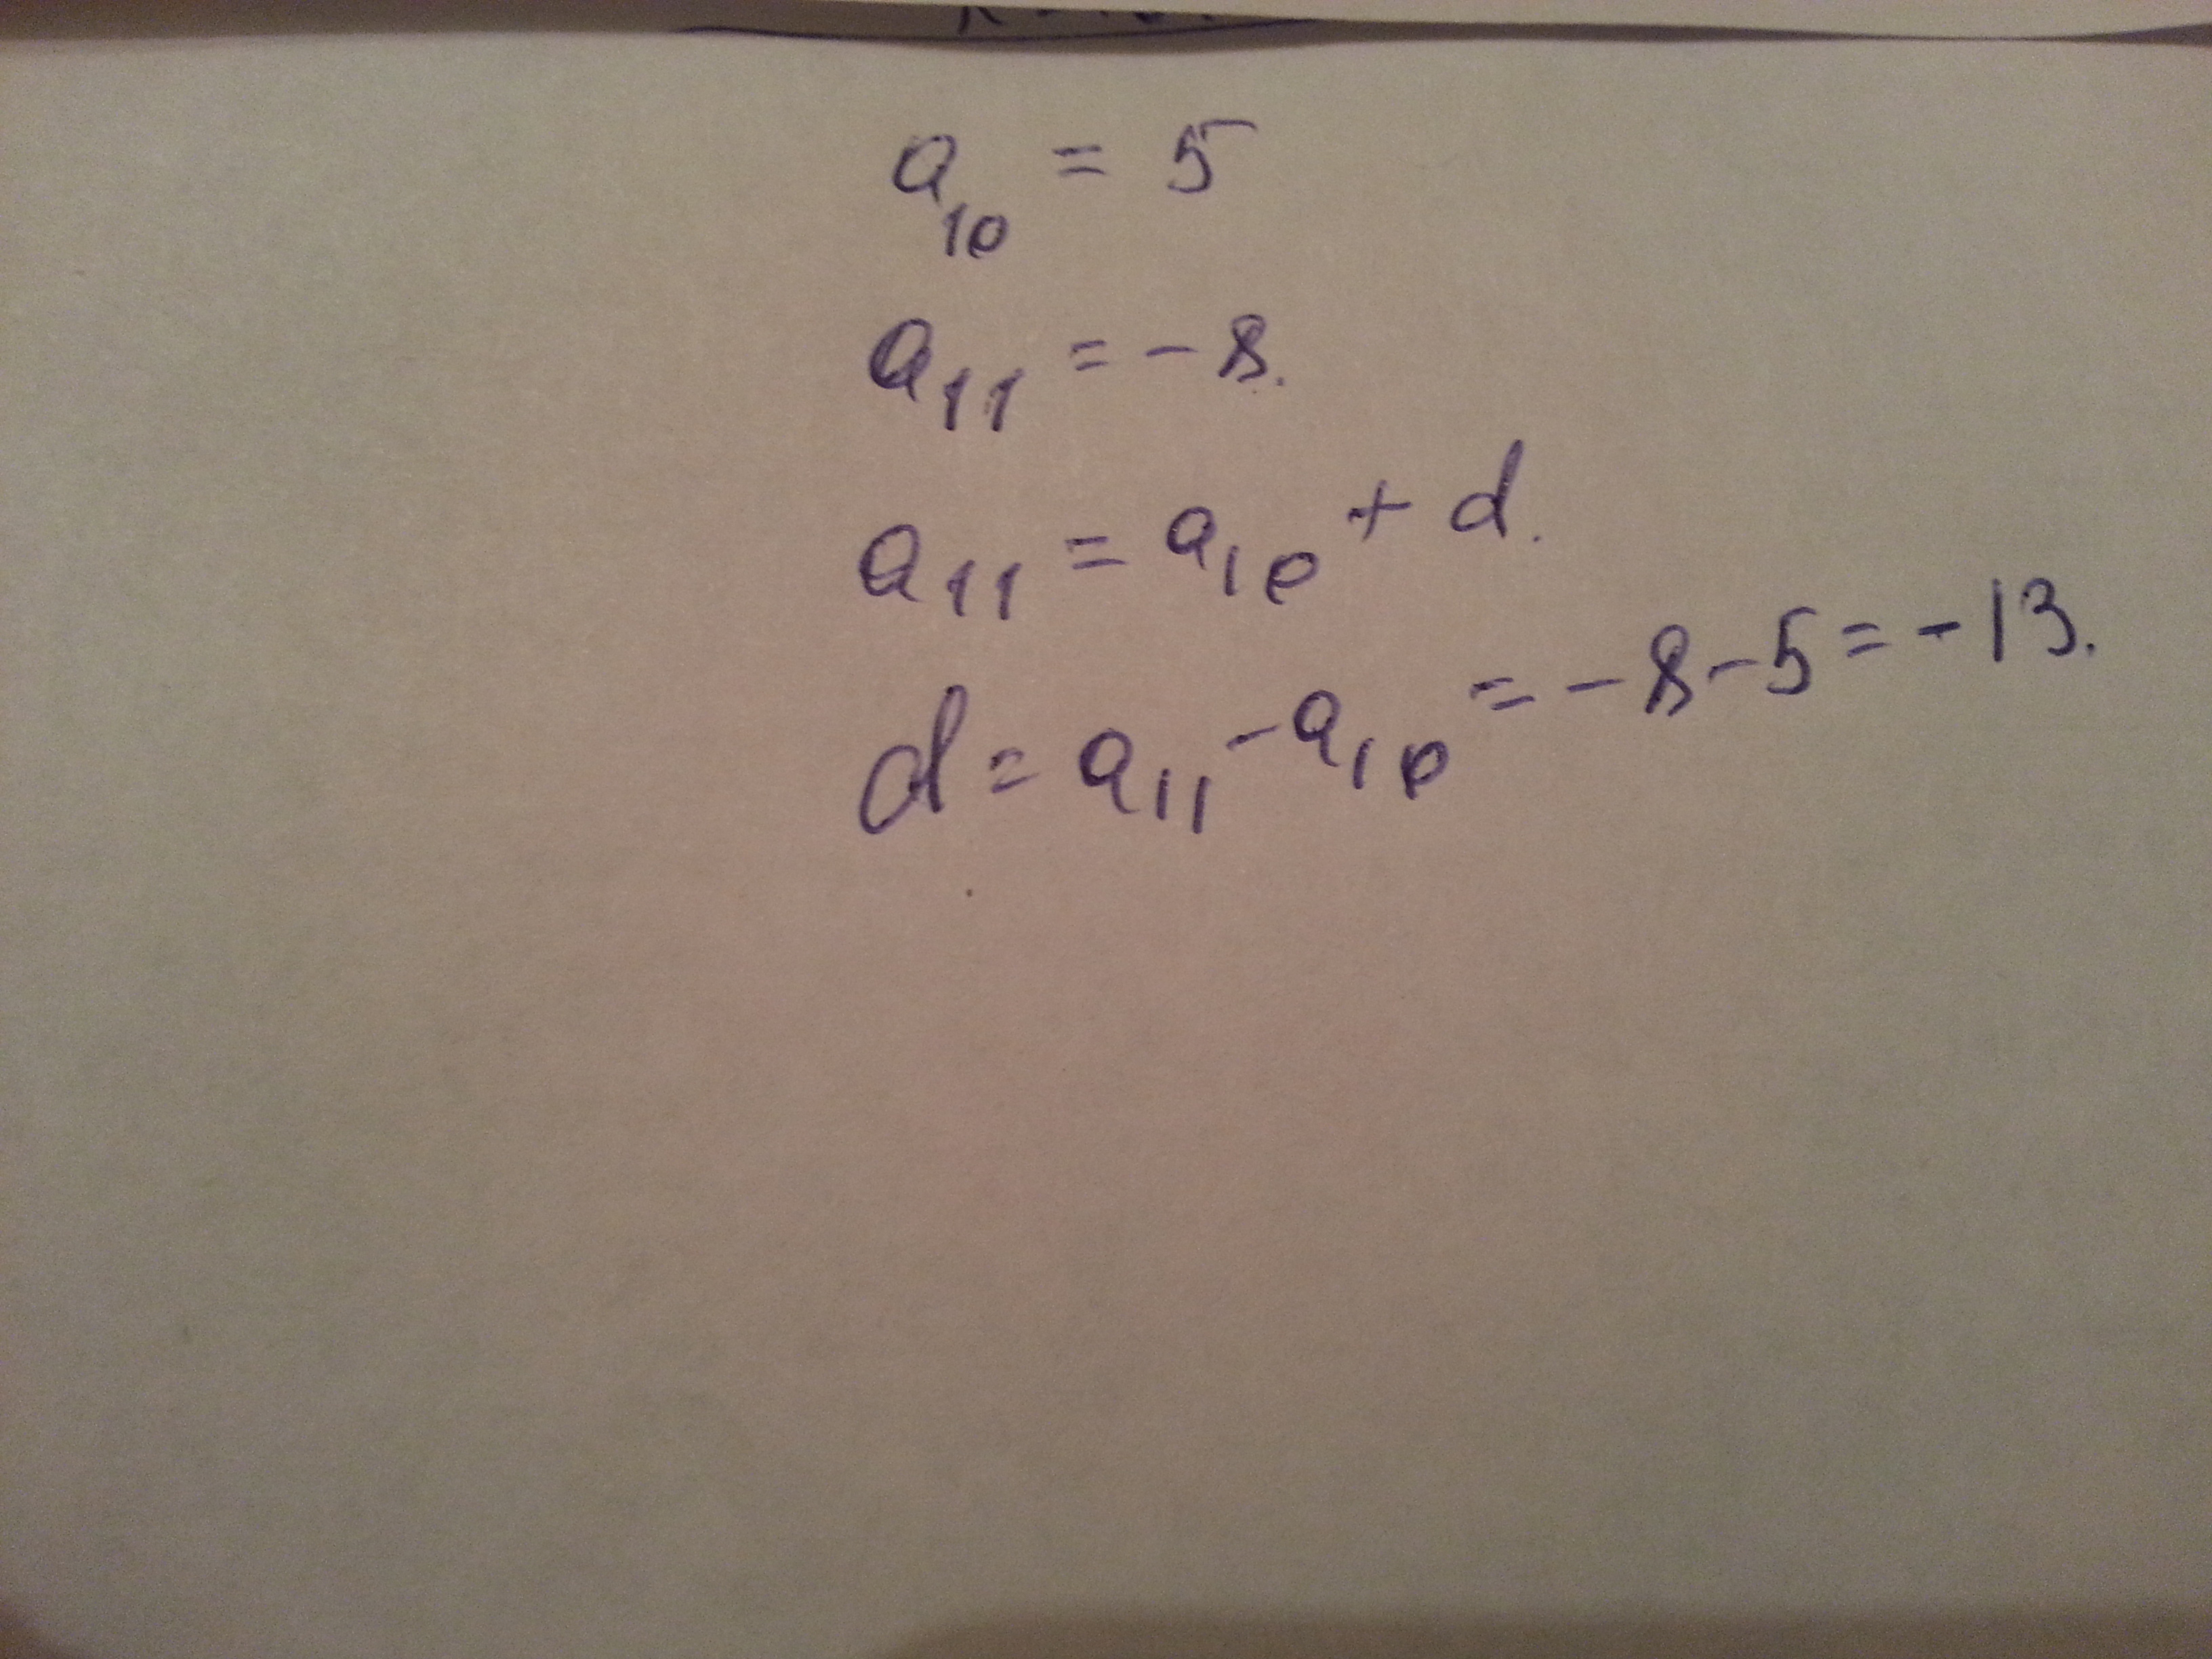 a₁₀ = 5
a₁₁ = - 8.
a₁₁ = a₁₀ + d.
d = a₁₁ - a₁₀ = - 8 - 5 = - 13.